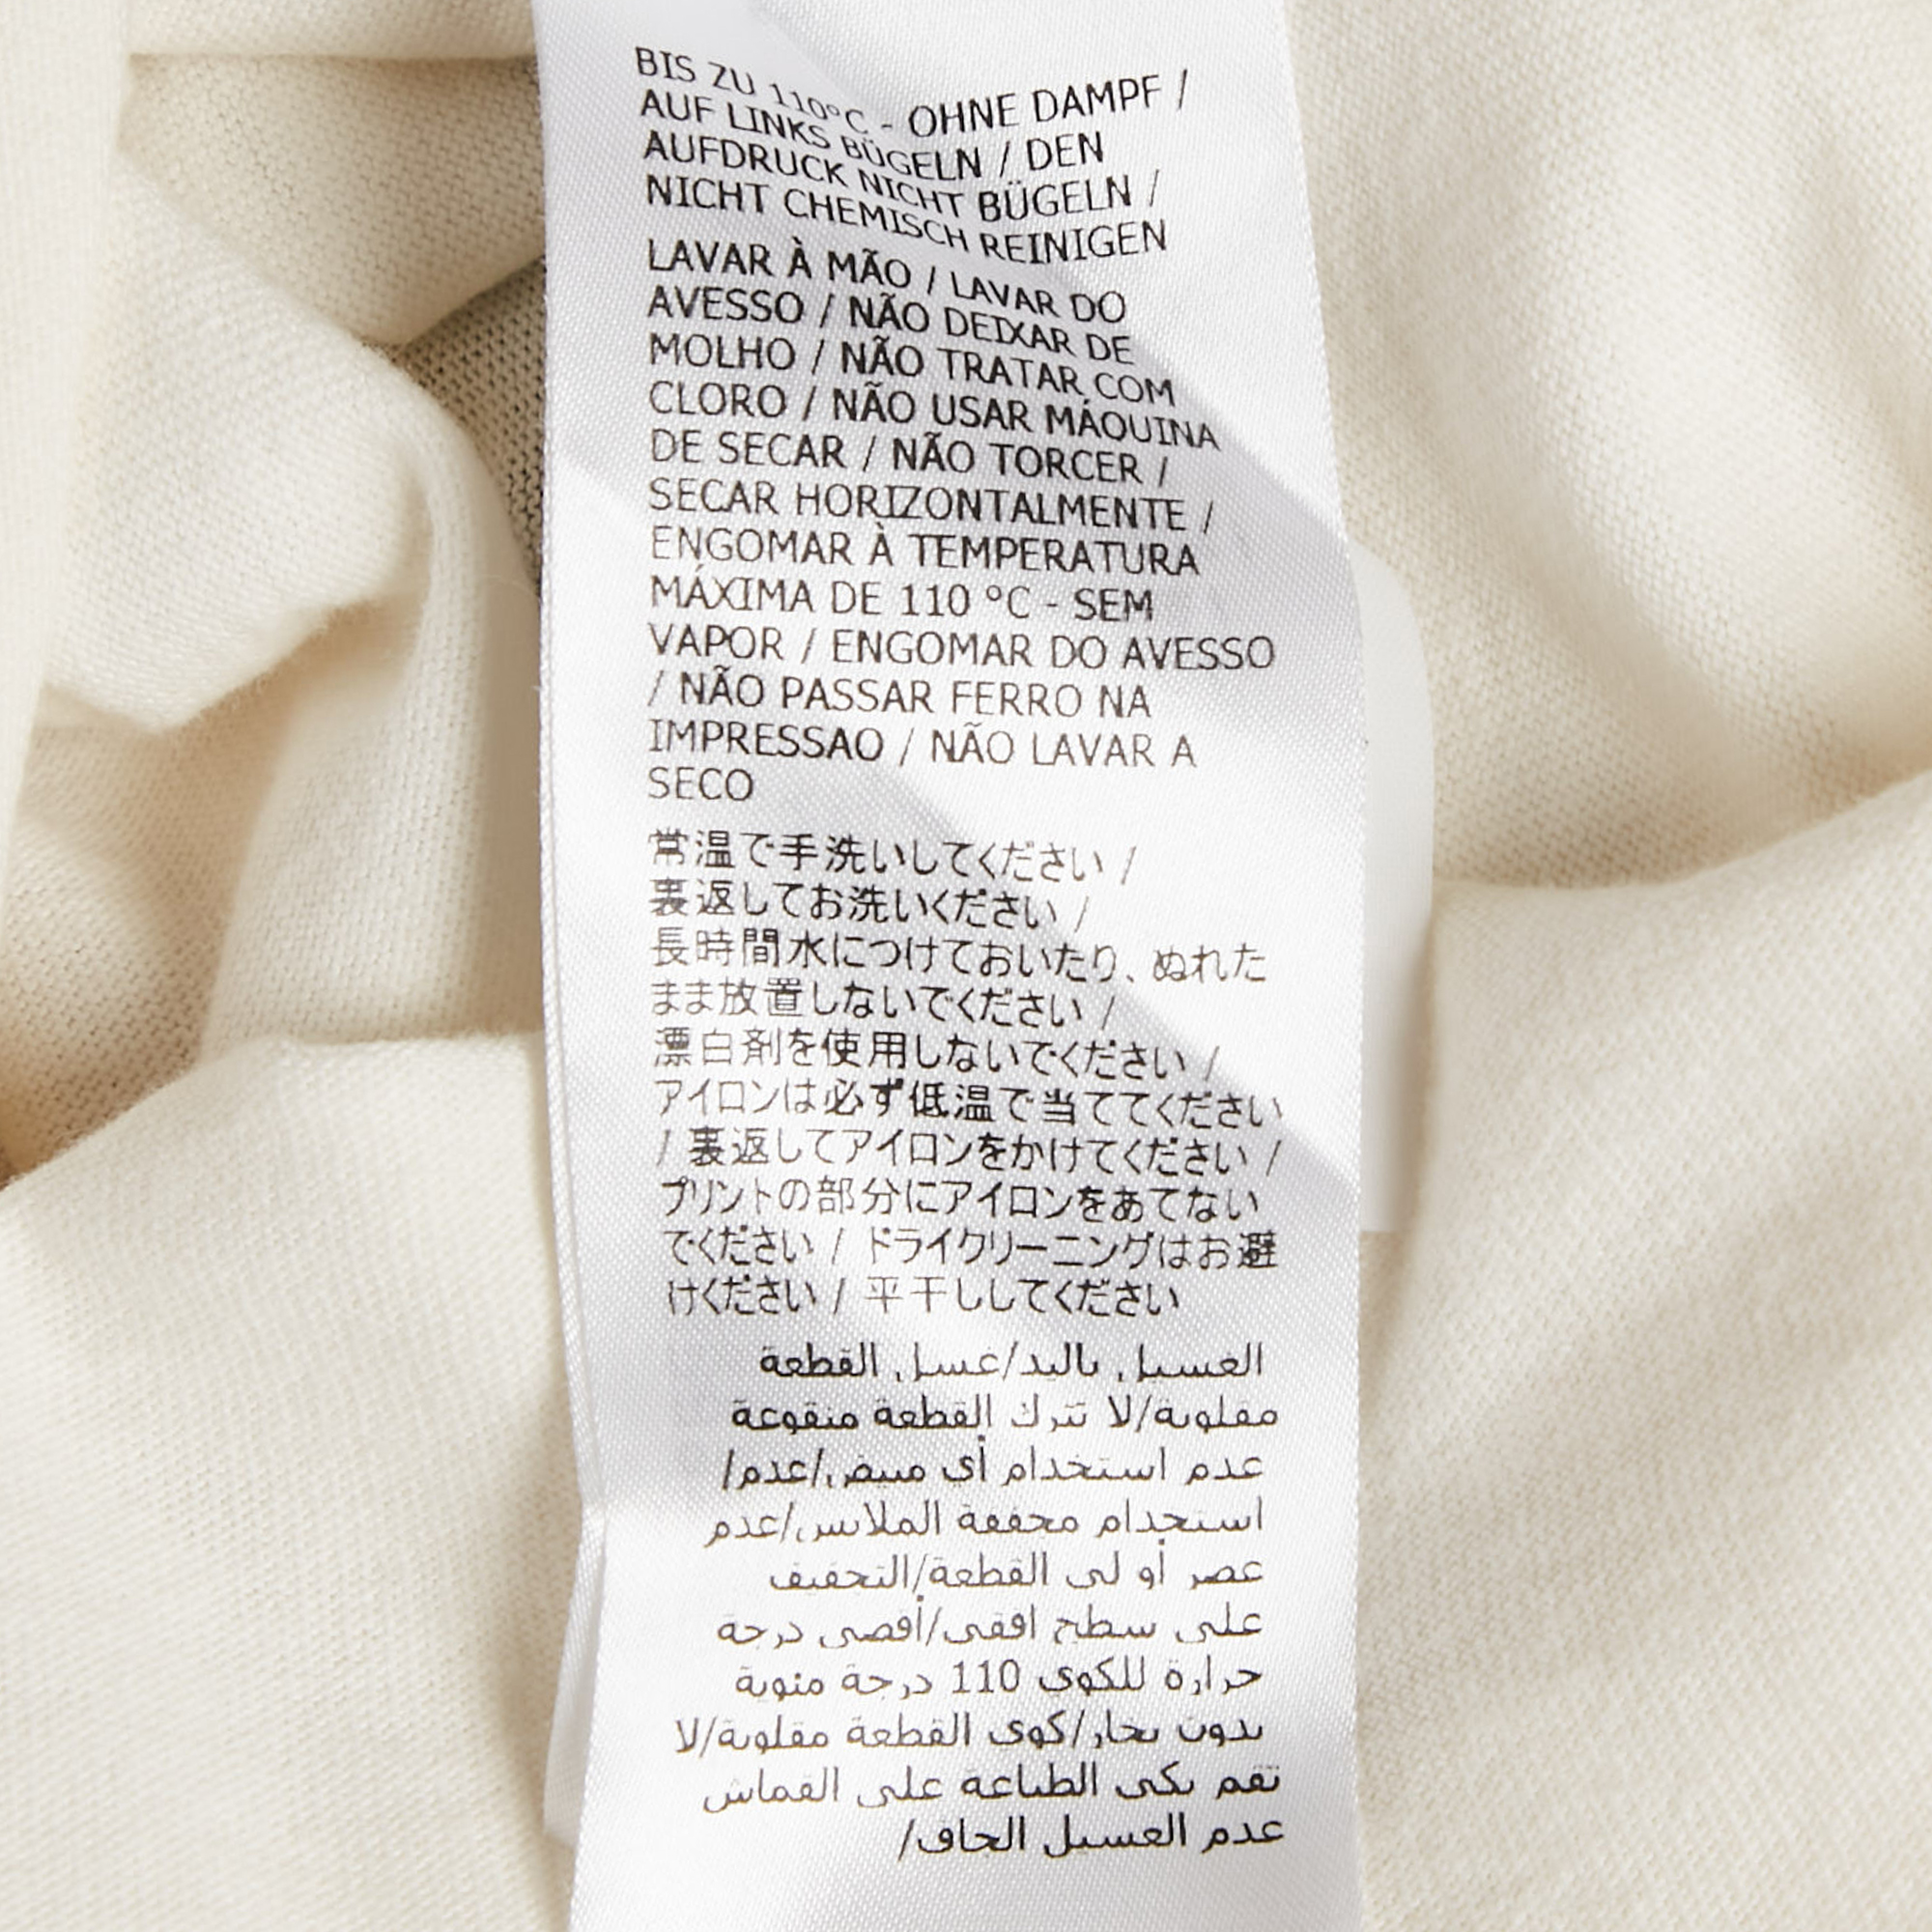 BIS ZU 110°C - OHNE DAMPF /
AUF LINKS BÜGELN / DEN
AUFDRUCK NICHT BÜGELN /
NICHT CHEMISCH REINIGEN
LAVAR À MÃO / LAVAR DO
AVESSO / NÃO DEIXAR DE
MOLHO / NÃO TRATAR COM
CLORO / NÃO USAR MÁQUINA
DE SECAR / NÃO TORCER /
SECAR HORIZONTALMENTE /
ENGOMAR À TEMPERATURA
MÁXIMA DE 110 °C - SEM
VAPOR / ENGOMAR DO AVESSO
/ NÃO PASSAR FERRO NA
IMPRESSAO / NÃO LAVAR A
SECO
常温で手洗いしてください /
裏返してお洗いください /
長時間水につけておいたり、ぬれた
まま放置しないでください /
漂白剤を使用しないでください /
アイロンは必ず低温で当ててください
/ 裏返してアイロンをかけてください /
プリントの部分にアイロンをあてない
でください / ドライクリーニングはお避
けください / 平干ししてください
الغسيل باليد/غسل القطعة
مقلوبة/لا تترك القطعة منقوعة
عدم استخدام أي مبيض/عدم/
استخدام مجففة الملابس/عدم
عصر أو لي القطعة/التجفيف
على سطح افقي/أقصى درجة
حرارة للكوي 110 درجة مئوية
بدون بخار/كوي القطعة مقلوبة/لا
تقم بكي الطباعة على القماش
عدم الغسيل الجاف/